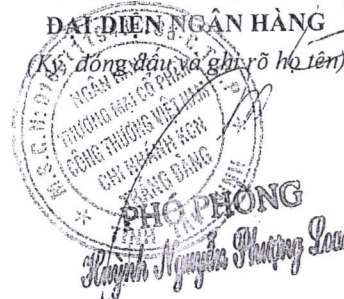 ĐẠI DIỆN NGÂN HÀNG
(Ký, đóng dấu và ghi rõ họ tên)
NGÂN HÀNG
THƯƠNG MẠI CỔ PHẦN
CÔNG THƯƠNG VIỆT NAM
CHI NHÁNH KCN
TRẢNG BÀNG
PHÓ PHÒNG
Huỳnh Nguyễn Phượng Loan